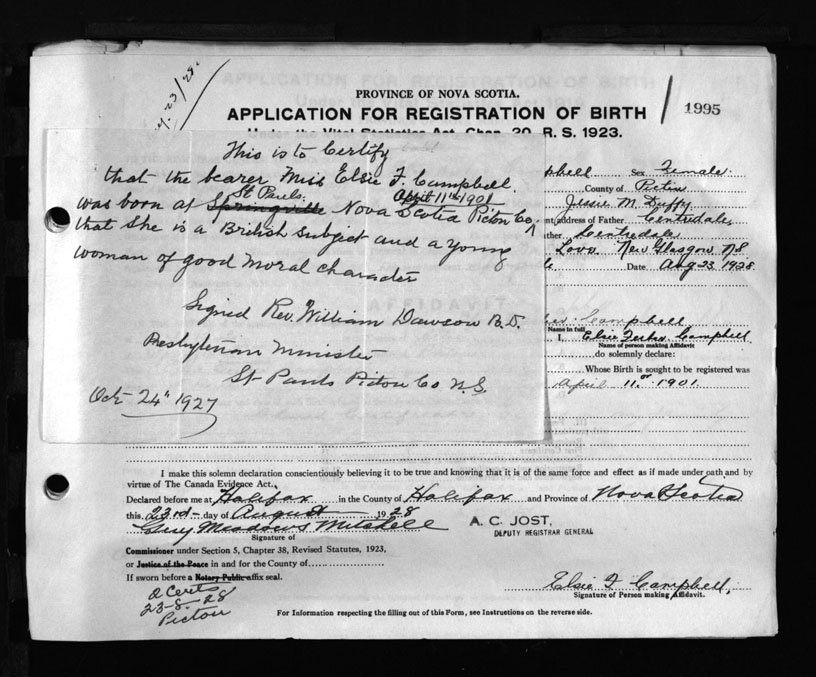 PROVINCE OF NOVA SCOTIA.
APPLICATION FOR REGISTRATION OF BIRTH
1995
Under the Vital Statistics Act, Chap. 20, R. S. 1923.
This is to Certify
that the bearer Miss Elsie F. Campbell
St Pauls. April 11th 1901
was born at Springville Nova Scotia Picton Co
that she is a British subject and a young
woman of good moral character
Signed Rev. William Dawson B.D.
Presbyterian Minister
St Pauls Picton Co N.S.
Oct 24th 1927
pbell Sex Female
County of Pictou
Jessie M. Duffy
address of Father Centredale
ther Centredale
New Glasgow NS
Date Aug 23 1928
Campbell
Name in full
I, Elsie Campbell
Name of person making Affidavit
do solemnly declare:
Whose Birth is sought to be registered was
April 11th 1901
I make this solemn declaration conscientiously believing it to be true and knowing that it is of the same force and effect as if made under oath and by
virtue of The Canada Evidence Act.
Declared before me at Halifax in the County of Halifax and Province of Nova Scotia
this, 23rd day of August 1928
Guy Meadows Mitchell
Signature of
A. C. JOST,
DEPUTY REGISTRAR GENERAL
Commissioner under Section 5, Chapter 38, Revised Statutes, 1923,
or Justice of the Peace in and for the County of
If sworn before a Notary Public affix seal.
2 Certs
23-8-28
Pictou
Elsie F Campbell,
Signature of Person making Affidavit.
For Information respecting the filling out of this Form, see Instructions on the reverse side.